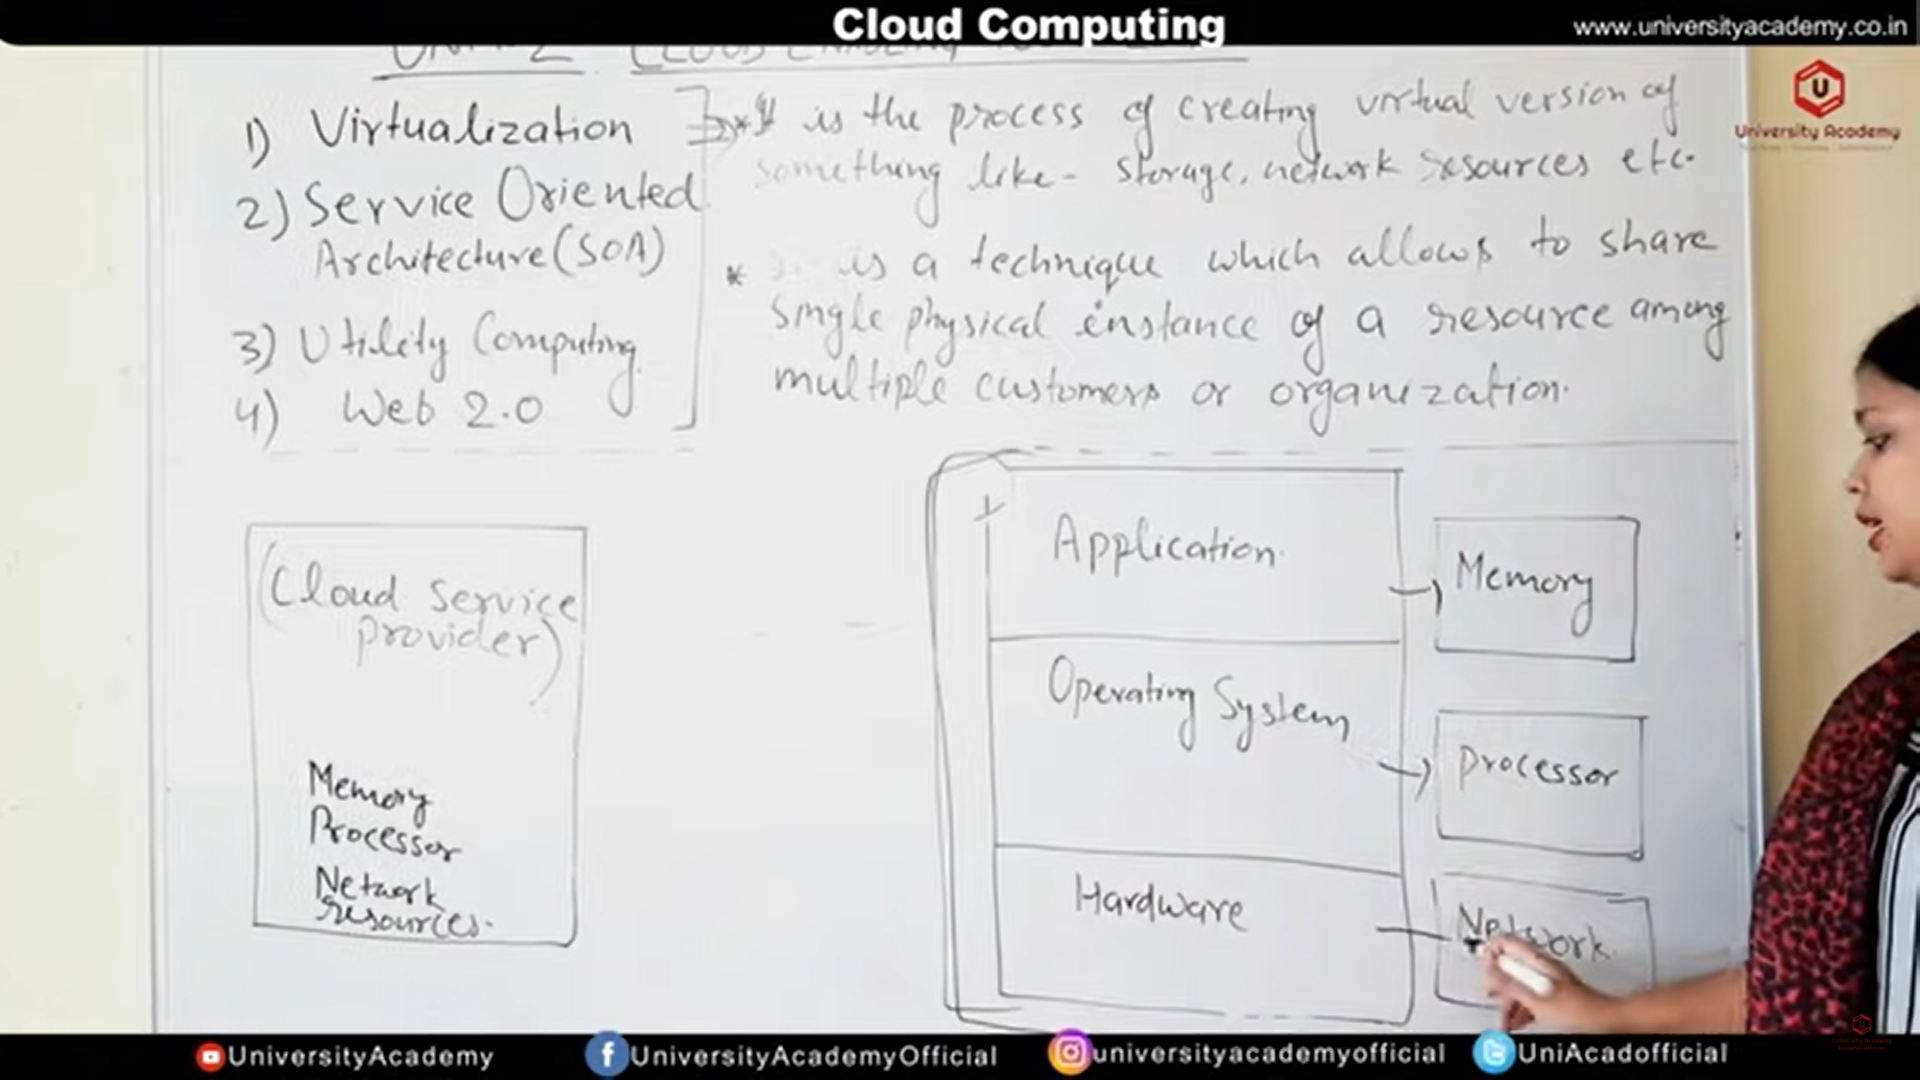 Cloud Computing
www.universityacademy.co.in
UNIT-2 CLOUD ENABLING
1) Virtualization
2) Service Oriented
Architecture (SOA)
3) Utility Computing
4) Web 2.0
* It is the process of creating virtual version of
something like - storage, network resources etc.
* is a technique which allows to share
single physical instance of a resource among
multiple customers or organization.
U
University Academy
(Cloud service
provider)
Memory
Processor
Network
resources.
Application
Operating System
Hardware
Memory
Processor
Network
UniversityAcademy
UniversityAcademyOfficial
universityacademyofficial
UniAcadofficial